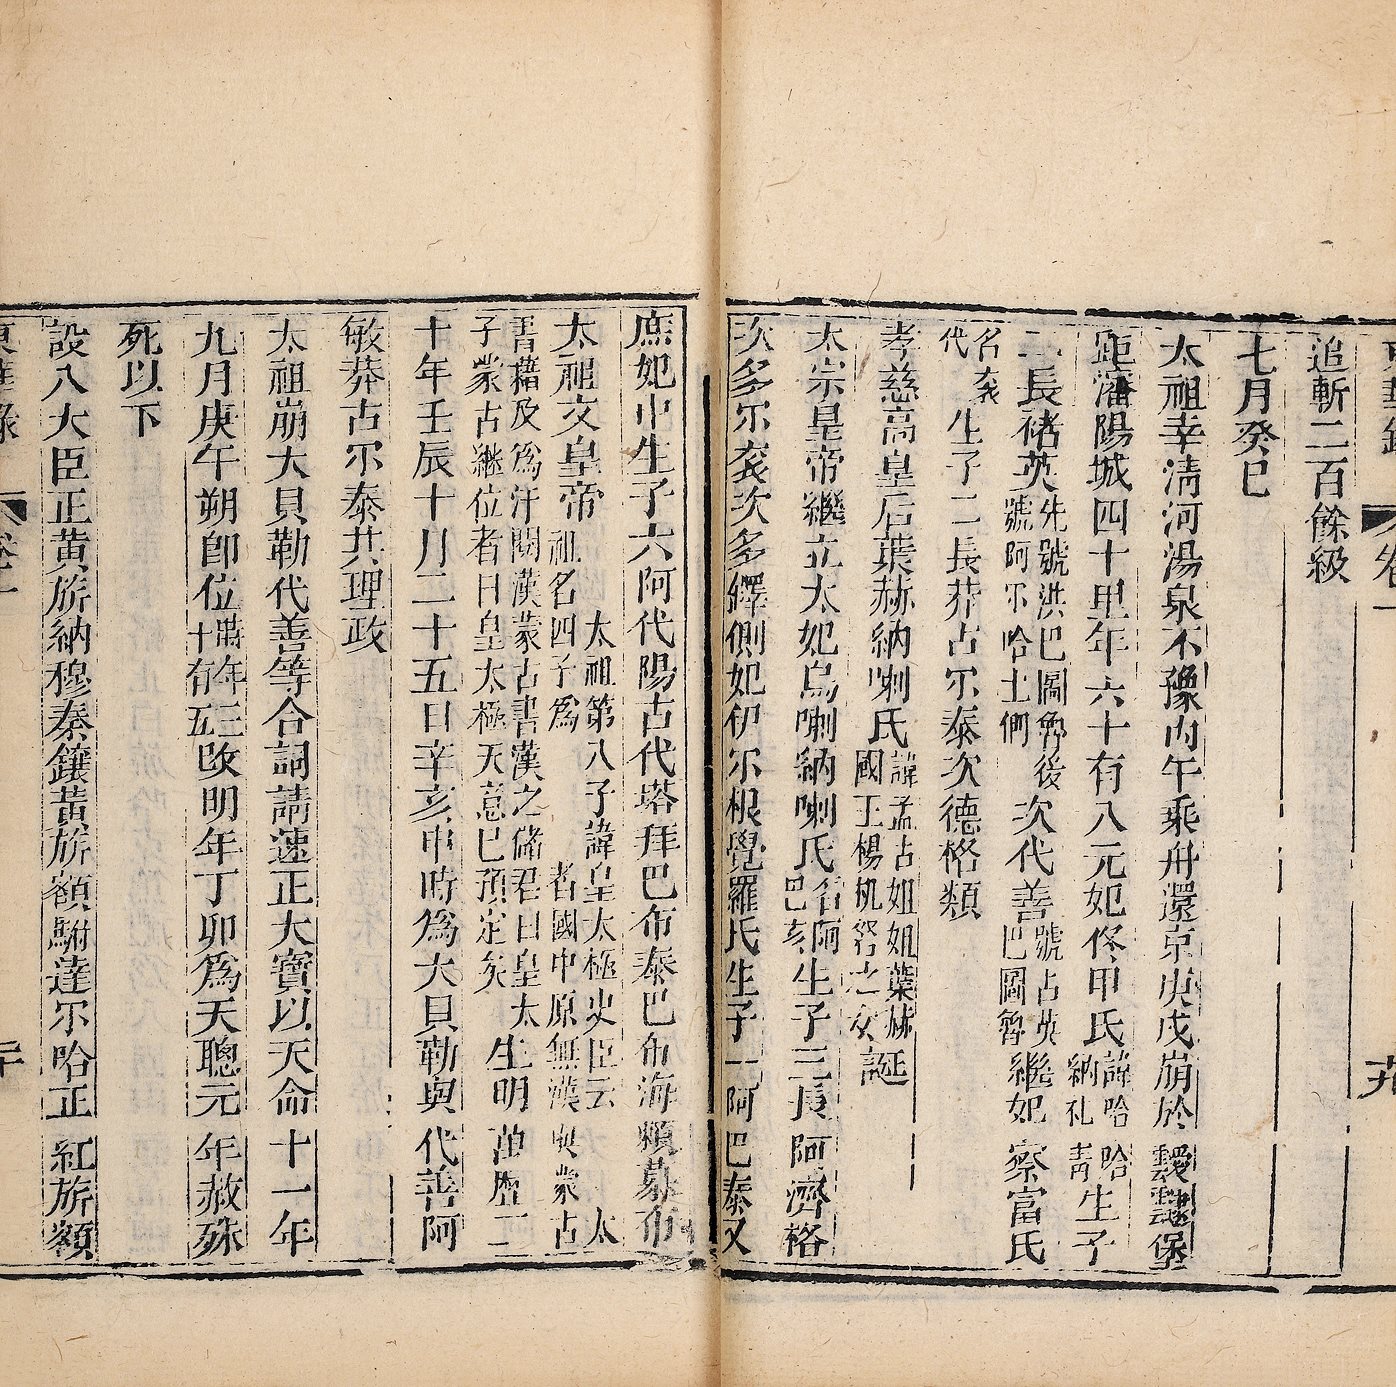 東華錄 卷一
追斬二百餘級
七月癸巳
太祖幸清河湯泉不豫丙午乘舟還京庚戌崩於靉雞堡
距瀋陽城四十里年六十有八元妃佟甲氏諱哈納札哈青生子
二長褚英先號洪巴圖魯後號阿尔哈土們次代善號占英巴圖魯繼妃察富氏
名袞代生子二長莽古尔泰次德格類
孝慈高皇后葉赫納喇氏諱孟古姐姐葉赫國王楊机弩之女誕
太宗皇帝繼立太妃烏喇納喇氏名阿巴亥生子三長阿濟格
次多尔袞次多繹側妃伊尔根覺羅氏生子一阿巴泰又
庶妃中生子六阿代陽古代塔拜巴布泰巴布海賴慕布
太祖文皇帝太祖第八子諱皇太極史臣云太祖名四子為者國中原無漢與蒙古
書籍及為汗閱漢蒙古書漢之儲君曰皇太子蒙古繼位者曰皇太極天意已預定矣生明萬曆二
十年壬辰十月二十五日辛亥申時為大貝勒與代善阿
敏莽古尔泰共理政
太祖崩大貝勒代善等合詞請速正大寶以天命十一年
九月庚午朔卽位時年三十有五改明年丁卯為天聰元年赦殊
死以下
設八大臣正黃旂納穆泰鑲黃旂額駙達尔哈正紅旂額
東華錄 卷一